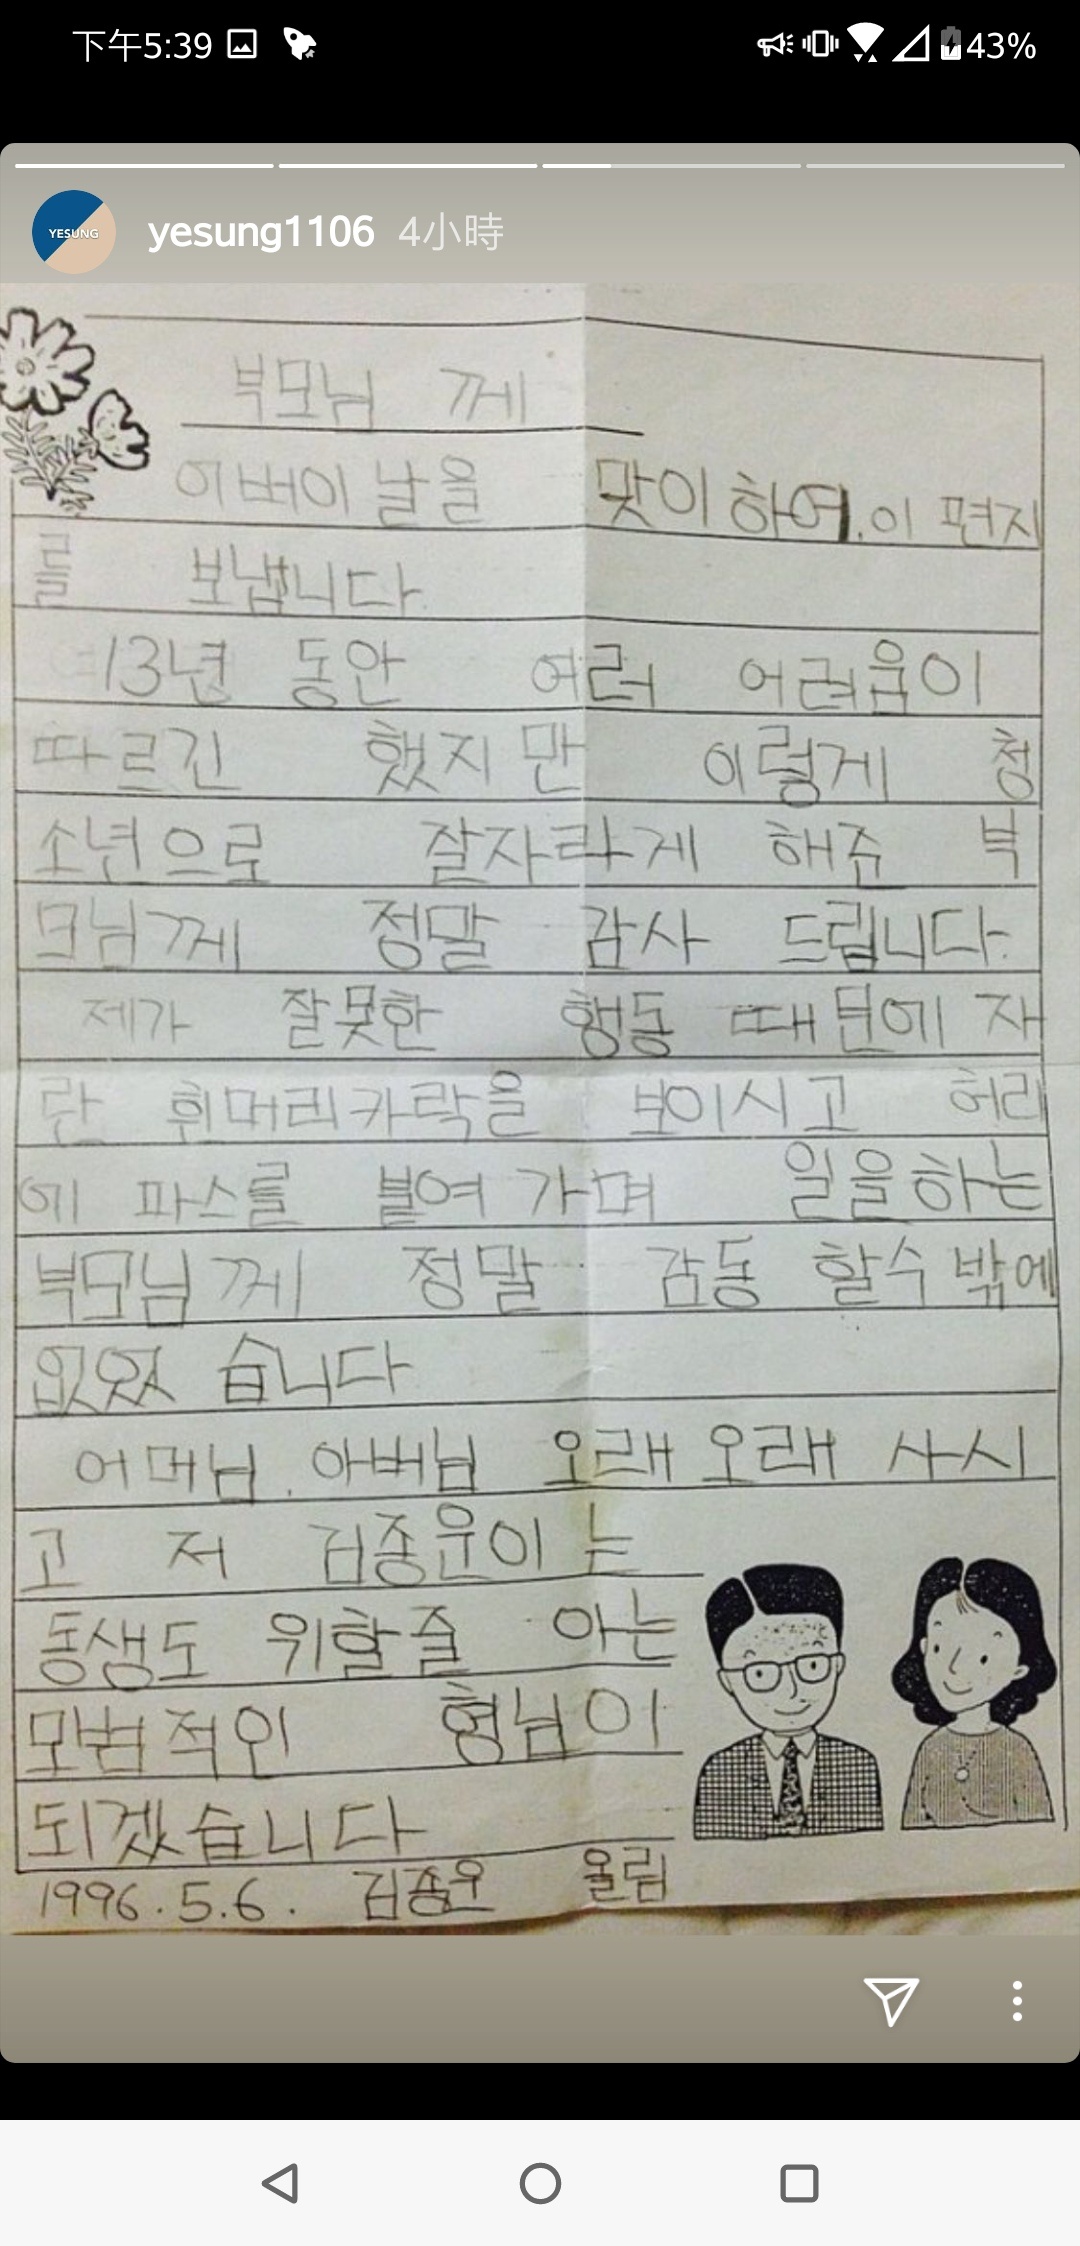 下午5:39 43%
YESUNG yesung1106 4小時
부모님 께
어버이 날을 맞이 하여. 이 편지
를 보냅니다.
13년 동안 여러 어려움이
따르긴 했지만 이렇게 청
소년으로 잘자라게 해준 부
모님께 정말 감사 드립니다.
제가 잘못한 행동 때문에 자
란 흰머리카락을 보이시고 허리
에 파스를 붙여 가며 일을하는
부모님께 정말 감동 할수밖에
없었습니다
어머님. 아버님 오래 오래 사시
고 저 김종운이는
동생도 위할줄 아는
모범적인 형님이
되겠습니다
1996.5.6. 김종운 올림